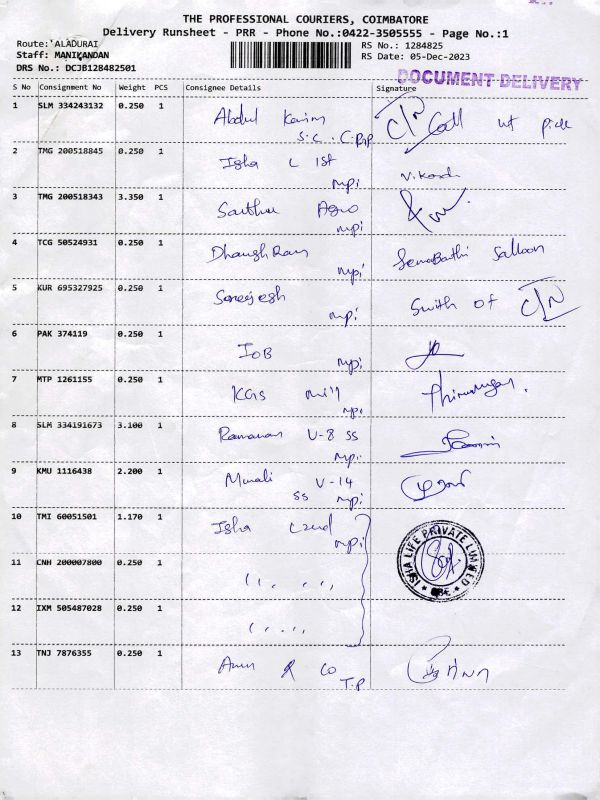 THE PROFESSIONAL COURIERS, COIMBATORE
Delivery Runsheet - PRR - Phone No.:0422-3505555 - Page No.:1
Route:'ALADURAI
Staff: MANIKANDAN
DRS No.: DCJB128482501
RS No.: 1284825
RS Date: 05-Dec-2023
DOCUMENT DELIVERY
S No Consignment No Weight PCS Consignee Details Signature
1 SLM 334243132 0.250 1 Abdul Karim C/N Call
2 TMG 200518845 0.250 1 Isha L 1st
mpi
3 TMG 200518343 3.350 1 Agro
mpi
4 TCG 50524931 0.250 1 Dhanush Ram Salloon
mpi
5 KUR 695327925 0.250 1 Sareejesh Swith of C/N
mpi
6 PAK 374119 0.250 1 IOB
mpi
7 MTP 1261155 0.250 1 KGS mill Thirumurugan.
mpi
8 SLM 334191673 3.100 1 Ramanan U-8 SS
mpi
9 KMU 1116438 2.200 1 Murali U-14
SS mpi
10 TMI 60051501 1.170 1 Isha
mpi
ISHA LIFE PRIVATE LIMITED
CBE
11 CNH 200007800 0.250 1 ,, ,,
12 IXM 505487028 0.250 1 ,, ,,
13 TNJ 7876355 0.250 1 Arun & Co
T.P